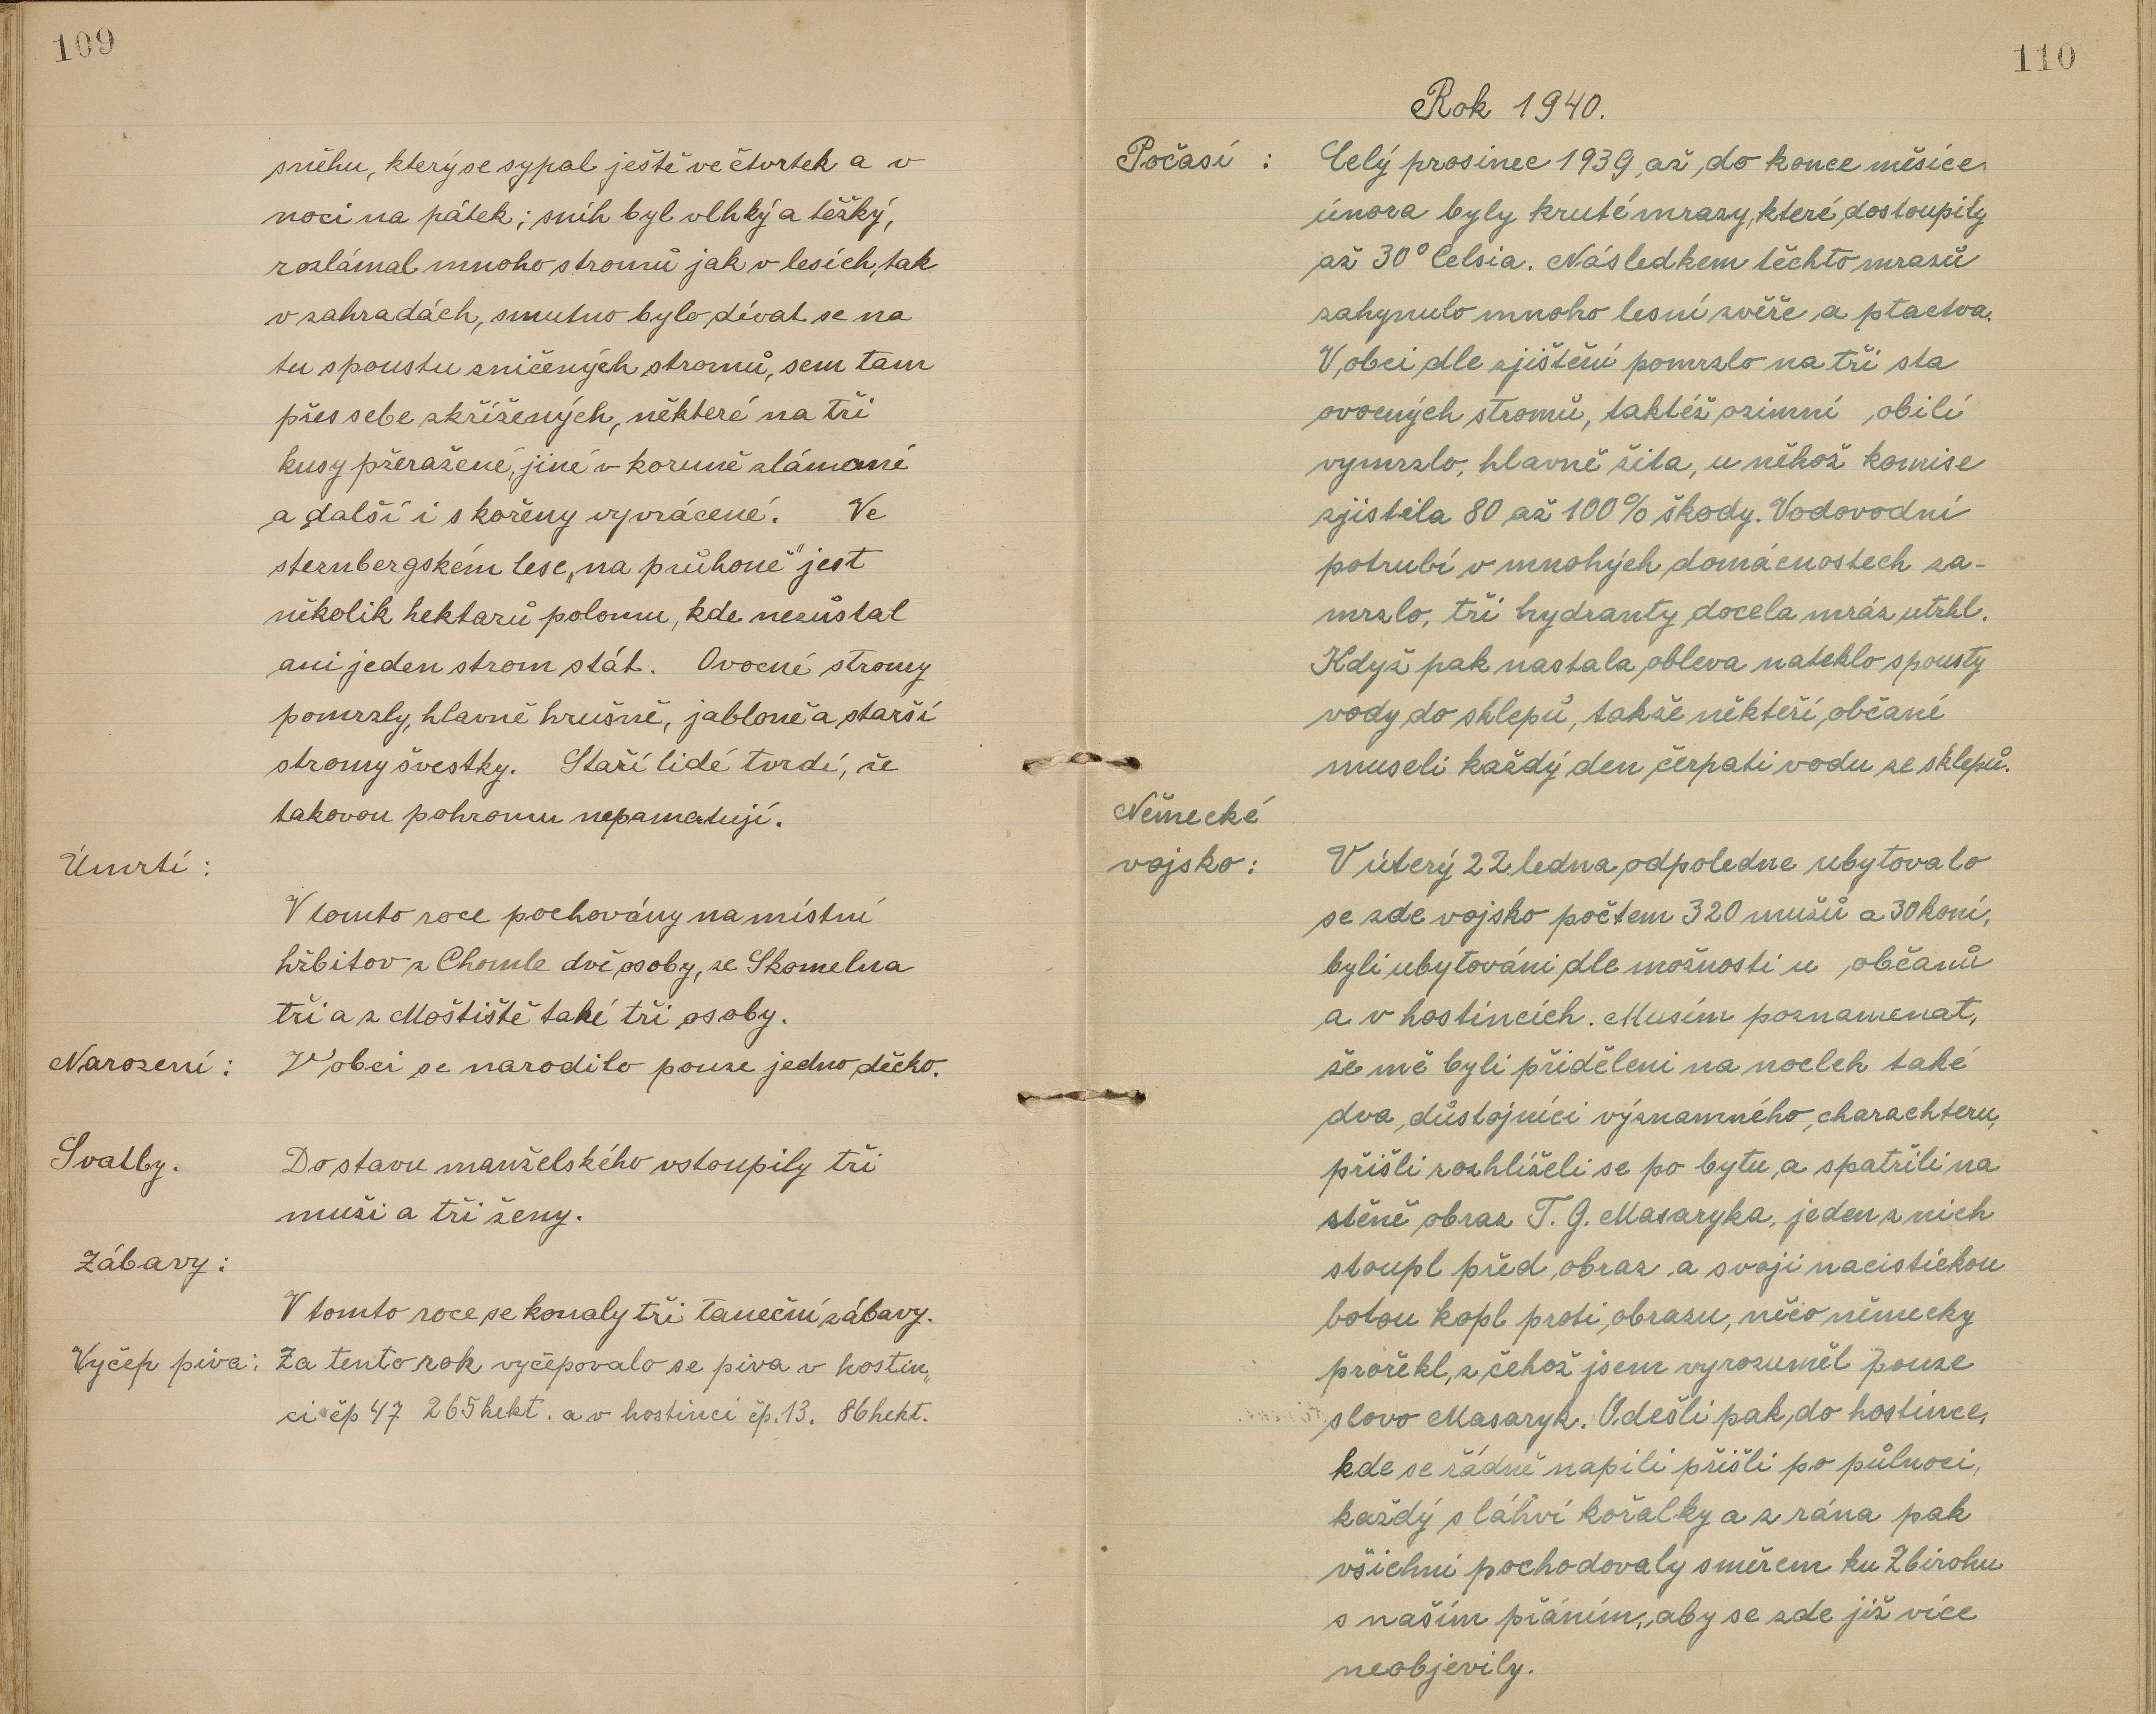 109
sněhu, který se sypal ještě ve čtvrtek a v
noci na pátek; sníh byl vlhký a těžký,
rozlámal mnoho stromů jak v lesích, tak
v zahradách, smutno bylo dívat se na
tu spoustu zničených stromů, sem tam
přes sebe zkřížených, některé na tři
kusy přeražené, jiné v koruně zlámané
a další i s kořeny vyvrácené. Ve
sternbergském lese „na průhoně" jest
několik hektarů polomu, kde nezůstal
ani jeden strom stát. Ovocné stromy
pomrzly, hlavně hrušně, jabloně a starší
stromy švestky. Staří lidé tvrdí, že
takovou pohromu nepamatují.
Úmrtí:
V tomto roce pochovány na místní
hřbitov z Chomle dvě osoby, ze Skomelna
tři a z Moštiště také tři osoby.
Narození: V obci se narodilo pouze jedno děcko.
Svatby. Do stavu manželského vstoupily tři
muži a tři ženy.
Zábavy:
V tomto roce se konaly tři taneční zábavy.
Vyčep piva: Za tento rok vyčepovalo se piva v hostin„
ci čp 47 265 hekt. a v hostinci čp. 13. 86 hekt.
110
Rok 1940.
Počasí : Celý prosinec 1939 až do konce měsíce
února byly kruté mrazy, které dostoupily
až 30° Celsia. Následkem těchto mrazů
zahynulo mnoho lesní zvěře a ptactva.
V obci dle zjištění pomrzlo na tři sta
ovocných stromů, taktéž ozimní obilí
vymrzlo, hlavně žita, u něhož komise
zjistila 80 až 100% škody. Vodovodní
potrubí v mnohých domácnostech za-
mrzlo, tři hydranty docela mráz utrhl.
Když pak nastala obleva nateklo spousty
vody do sklepů, takže někteří občané
museli každý den čerpati vodu ze sklepů.
Německé
vojsko: V úterý 22 ledna odpoledne ubytovalo
se zde vojsko počtem 320 mužů a 30 koní,
byli ubytováni dle možnosti u občanů
a v hostincích. Musím poznamenat,
že mě byli přiděleni na nocleh také
dva důstojníci významného charachteru,
přišli rozhlíželi se po bytu a spatřili na
stěně obraz T. G. Masaryka, jeden z nich
stoupl před obraz a svojí nacistickou
botou kopl proti obrazu, něco německy
prořekl, z čehož jsem vyrozuměl pouze
slovo Masaryk. Odešli pak do hostince,
kde se řádně napili přišli po půlnoci,
každý s láhví kořalky a z rána pak
všichni pochodovaly směrem ku Zbirohu
s naším přáním, aby se zde již více
neobjevily.